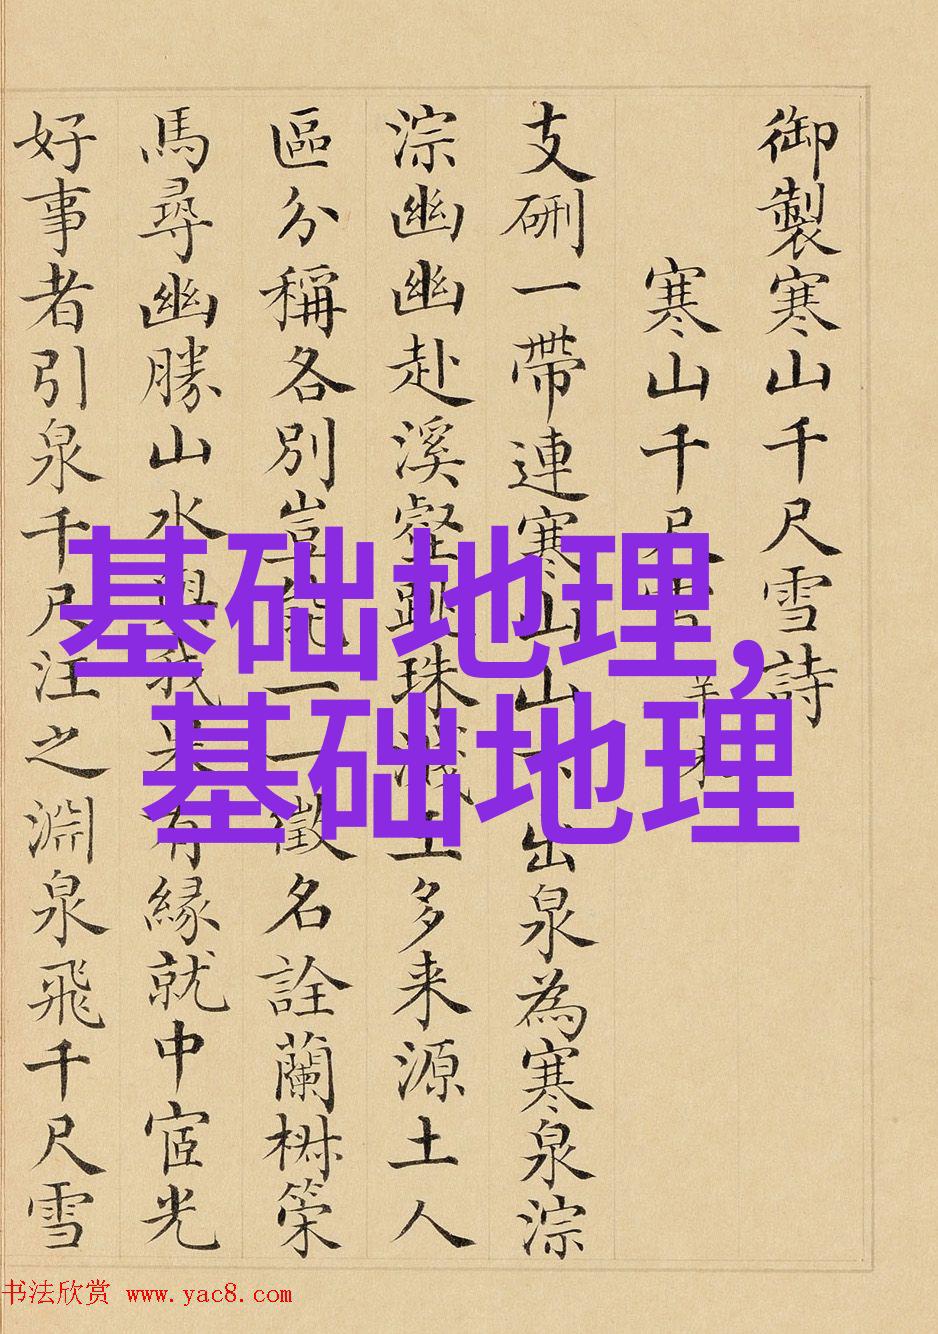 御製寒山千尺雪詩
寒山千尺雪
支硎一帶連寒山山下出泉為寒泉淙
淙幽幽赴溪壑跳珠濺玉多来源土人
區分稱各別豈能一一徵名詮蘭椒策
馬尋幽勝山水與我有緣就中宦光
好事者引泉千尺汪之淵泉飛千尺雪
基础地理,
基础地理
书法欣赏 www.yac8.com